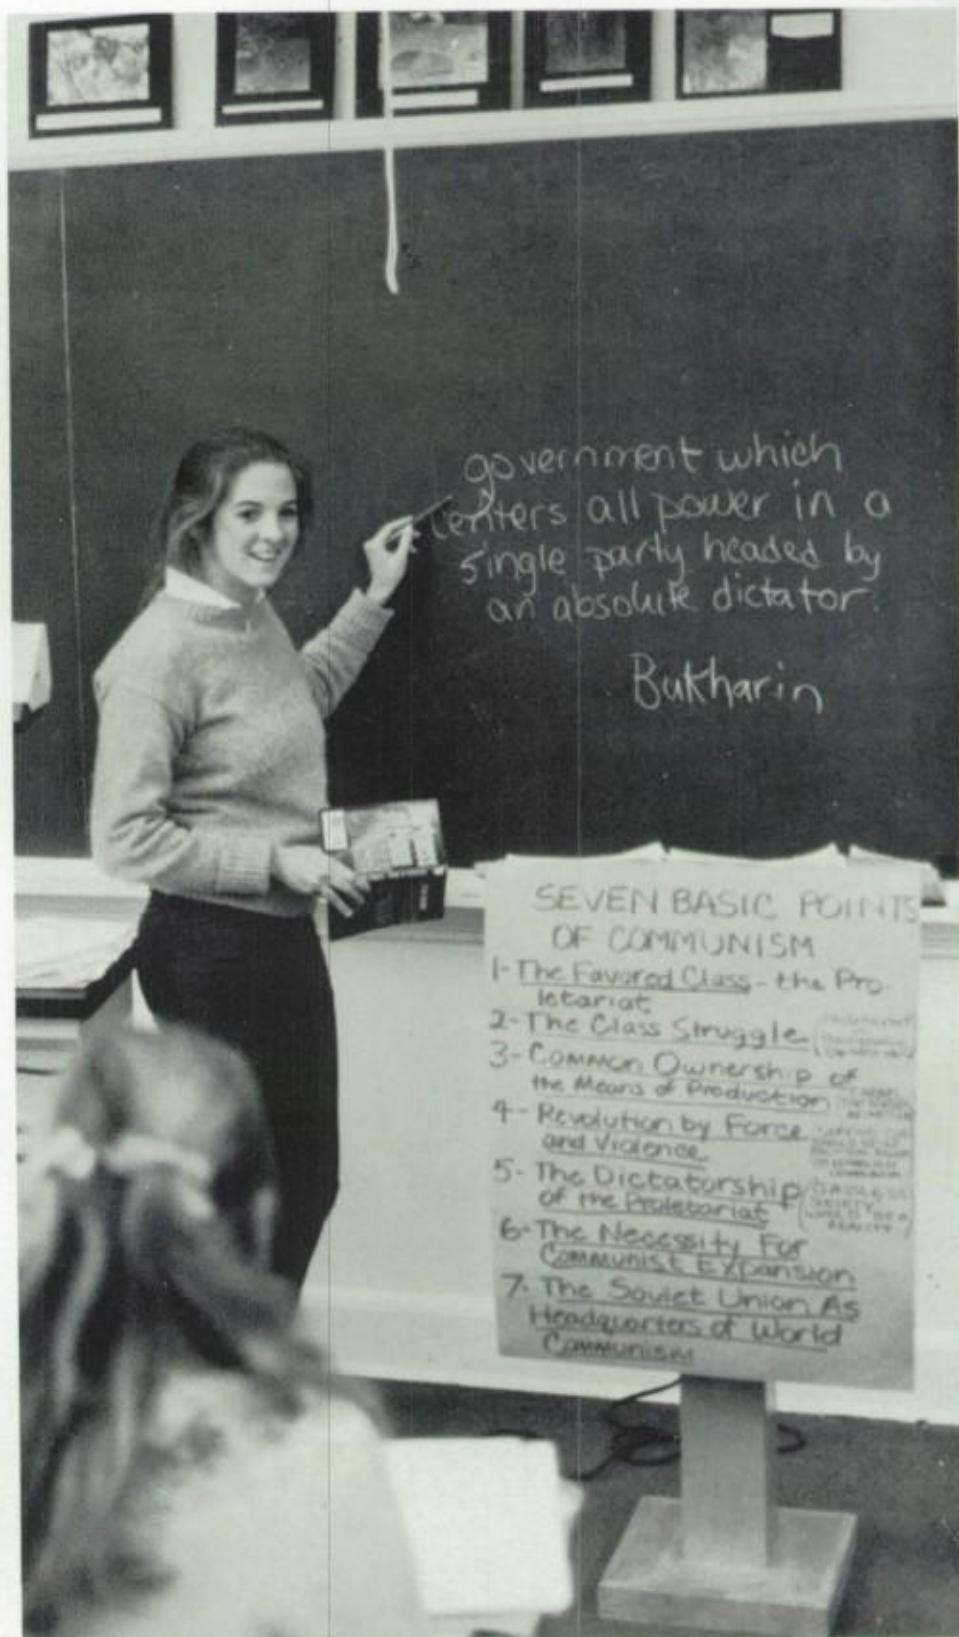 government which
centers all power in a
single party headed by
an absolute dictator.
Bukharin
SEVEN BASIC POINTS
OF COMMUNISM
1- The Favored Class - the Pro-
letariat
2- The Class Struggle
3- Common Ownership of
the Means of Production
4- Revolution by Force
and Violence
5- The Dictatorship
of the Proletariat
6- The Necessity For
Communist Expansion
7- The Soviet Union As
Headquarters of World
Communism